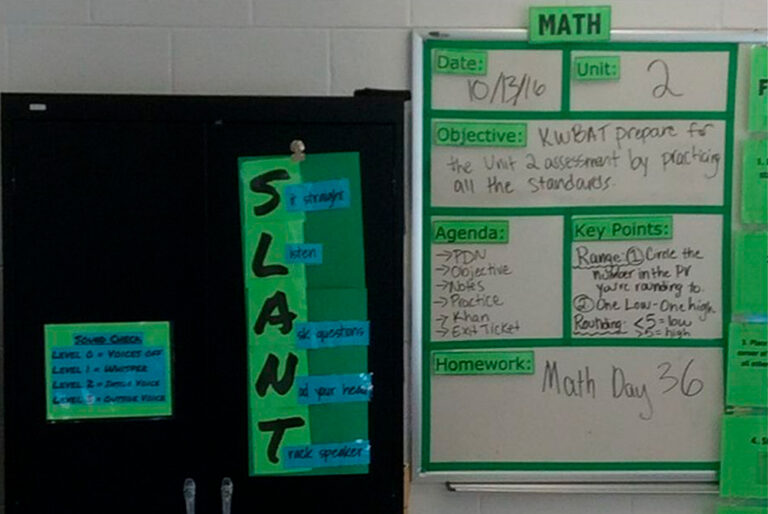 MATH
Date:
10/13/16
Unit:
2
Objective: KWBAT prepare for
the Unit 2 assessment by practicing
all the standards.
Agenda:
→PDN
→Objective
→Notes
→Practice
→Khan
→Exit Ticket
Key Points:
Range: ① Circle the
number in the PV
you're rounding to.
② One Low-One high
Rounding: <5=low
>5=high
Homework:
Math Day 36
SLANT
Sit straight
Listen
Ask questions
Nod your head
Track speaker
SOUND CHECK
LEVEL 0 = VOICES OFF
LEVEL 1 = WHISPER
LEVEL 2 = VOICE
LEVEL 3 = OUTSIDE VOICE